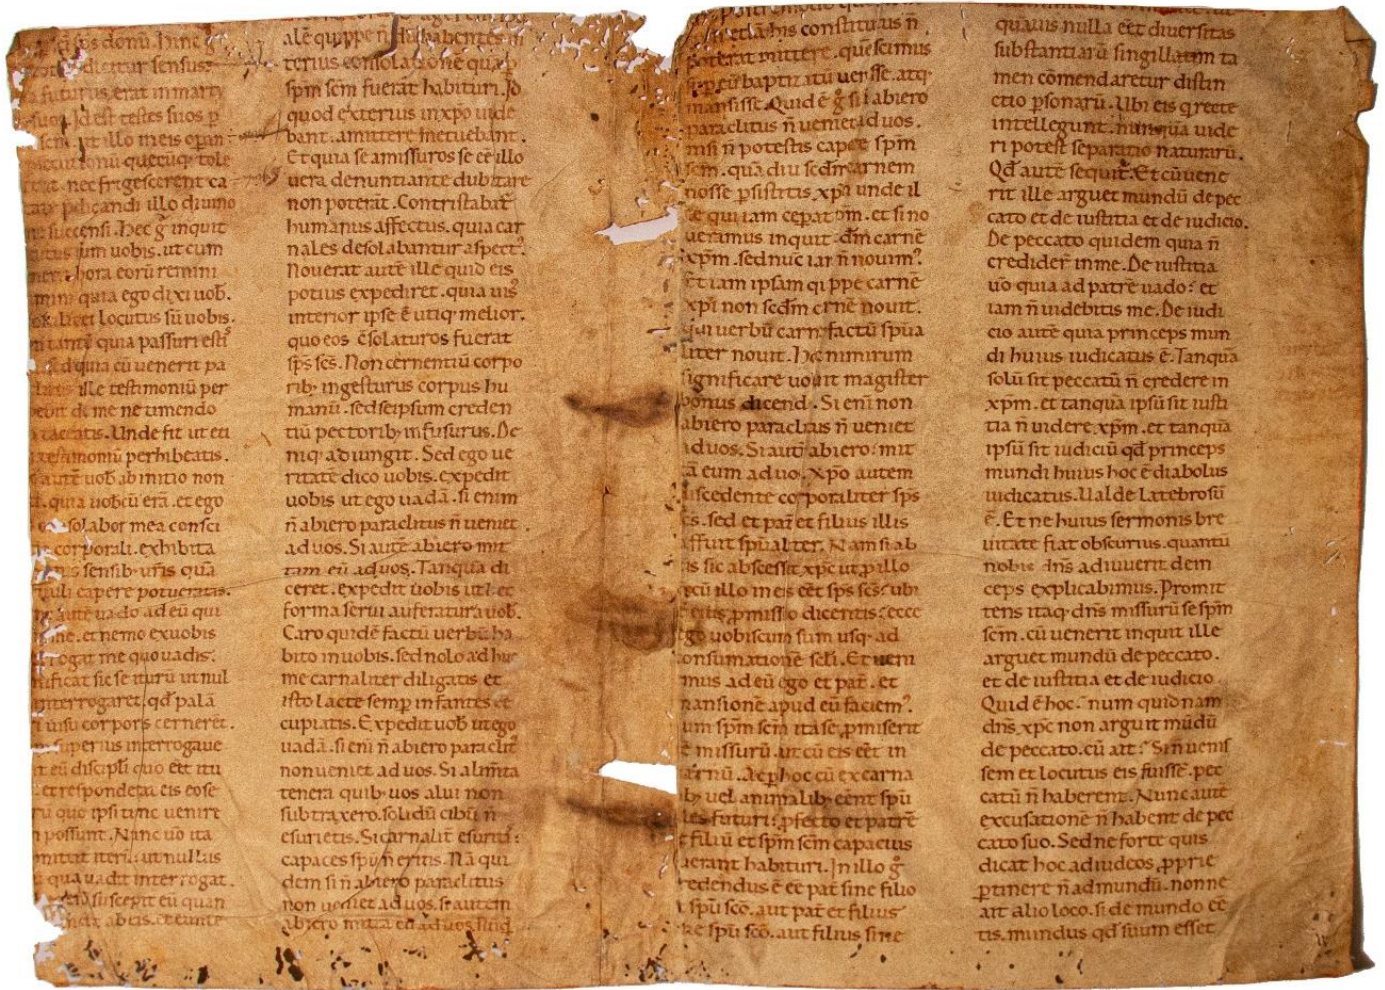 donū. hinc
dicitur sensus.
futurus erat in marty
Id est testes suos p
ut illo meis opan
quecūq; tole
nec frigescerent ca
p̄dicandi illo diuino
succensi. Hec g̊ inquit
sum uobis. ut cum
hora eorū remini
quia ego dixi uob̄.
locutus sū uobis.
tantū quia passuri estis
quia cū uenerit pa
ille testimoniū per
de me ne timendo
taceatis. Unde fit ut et
testimoniū perhibeatis.
autē uob̄ ab initio non
quia uobcū erā. et ego
solabor mea consci
corporali. exhibita
sensib; ur̄is quā
capere potueratis.
autē uado ad eū qui
et nemo ex uobis
me quo uadis.
sic se iturū ut nul
interrogaret. qd̄ palā
uisu corporis cerneret.
superius interrogaue
eū discipl̄i quo eēt itu
et respondetᷣ eis eose
quo ipsi tunc uenire
possunt. Nunc uō ita
iterū. ut nullus
quo uadit interrogat.
suscepit eū quan
abtis. et eunte
ale quippe n̄ dū habentes in
terius consolatione quā p̄
sp̄m sc̄m fuerāt habituri. Id
quod exterius in xp̄o uide
bant. amittere metuebant.
Et quia se amissuros se eē illo
uera denuntiante dubitare
non poterāt. Contristabat᷑
humanus affectus. quia car
nales desolabantur aspectꝰ.
Nouerat autē ille quid eis
potius expediret. quia uisꝰ
interior ipse ē utiq; melior.
quo eos c̄solaturos fuerat
sp̄s sc̄s. Non cernentiū corpo
rib; ingesturus corpus hu
manū. sed seipsum creden
tiū pectorib; infusurus. De
niq; adiungit. Sed ego ue
ritatē dico uobis. expedit
uobis ut ego uadā. si enim
n̄ abiero paraclitus n̄ ueniet
ad uos. Si autē abiero mit
tam eū ad uos. Tanquā di
ceret. expedit uobis ut hec
forma serui auferatur a uob̄.
Caro quidē factū uerbū ha
bito in uobis. sed nolo ad huc
me carnaliter diligatis et
isto lacte semp̱ infantes ēē
cupiatis. Expedit uob̄ ut ego
uadā. si eni n̄ abiero paraclitꝰ
non ueniet ad uos. Si alm̄ta
tenera quib; uos alui non
subtraxero. solidū cibū n̄
esurietis. Si carnalit̄ esuriti.
capaces sp̄u n̄ eritis. Nā qui
dem si n̄ abiero paraclitus
non ueniet ad uos. si autem
abiero mittā eū ad uos
his constitutus n̄
poterat mittere. que scimus
sup̱ eū baptizatū uenisse. atq;
mansisse. Quid ē g̊ si n̄ abiero
paraclitus n̄ ueniet ad uos.
nisi n̄ potestis capere sp̄m
sc̄m. quā diu sedm̄ carnem
nosse p̱sistitis xp̄m unde il
le qui iam ceperat om̄. et si no
ueramus inquit sed̄m carnē
xp̄m. sed nūc iam n̄ nouimꝰ.
Et iam ipsam quippe carnē
xp̄i non sed̄m carnē nouit.
qui uerbū carnē factū sp̄ua
liter nouit. Hoc nimirum
significare uoluit magister
bonus dicendo. Si eni non
abiero paraclitus n̄ ueniet
ad uos. Si aut̄ abiero. mit
tā eum ad uos. Xp̄o autem
discedente corporaliter sp̄s
sc̄s. sed et pat̄ et filius illis
affuit sp̄ualiter. Nam si ab
is sic abscessit xp̄c ut pro illo
cū illo meis eēt sp̄s sc̄s. ubi
ē eius p̱missio dicentis. ecce
ego uobiscum sum usq; ad
consumationē scl̄i. Et ueni
mus ad eū ego et pat̄. et
mansionē apud eū faciemꝰ.
cum sp̄m sc̄m ita se p̱miserit
missurū. ut cū eis eēt in
Ac p̱ hoc cū ex carna
lib; uel animalib; eent sp̄u
les futuri. p̱fecto et patrē
et filiū et sp̄m sc̄m capacius
erant habituri. In illo g̊
credendus ē eē pat̄ sine filio
sp̄u sc̄o. aut pat̄ et filius
sp̄u sc̄o. aut filius sine
quāuis nulla eēt diuersitas
substantiarū singillatim ta
men cōmendaretur distin
ctio p̱sonarū. Ubi eis q̱ recte
intellegunt. nunquā uide
ri potest separatio naturarū.
Qd̄ autē sequit᷑. Et cū uene
rit ille arguet mundū de pec
cato et de iustitia et de iudicio.
De peccato quidem quia n̄
credider̄ in me. De iustitia
uō quia ad patrē uado. et
iam n̄ uidebitis me. De iudi
cio autē quia princeps mun
di huius iudicatus ē. Tanquā
solū sit peccatū n̄ credere in
xp̄m. et tanquā ipsū sit iusti
tia n̄ uidere xp̄m. et tanquā
ipsū sit iudiciū qd̄ princeps
mundi huius hoc ē diabolus
iudicatus. Ualde latebrosū
ē. Et ne huius sermonis bre
uitate fiat obscurius. quantū
nobis dn̄s adiuuerit dein
ceps explicabimus. Promit
tens itaq; dn̄s missurū se sp̄m
sc̄m. cū uenerit inquit ille
arguet mundū de peccato.
et de iustitia et de iudicio
Quid ē hoc. num quid nam
dn̄s xp̄c non arguit mūdū
de peccato. cū ait. Si n̄ uenis
sem et locutus eis fuissē. pec
catū n̄ haberent. Nunc autē
excusationē n̄ habent de pec
cato suo. Sed ne forte quis
dicat hoc ad iudeos p̱prie
p̱tinere n̄ ad mundū. nonne
ait alio loco. si de mundo eē
tis. mundus qd̄ suum esset